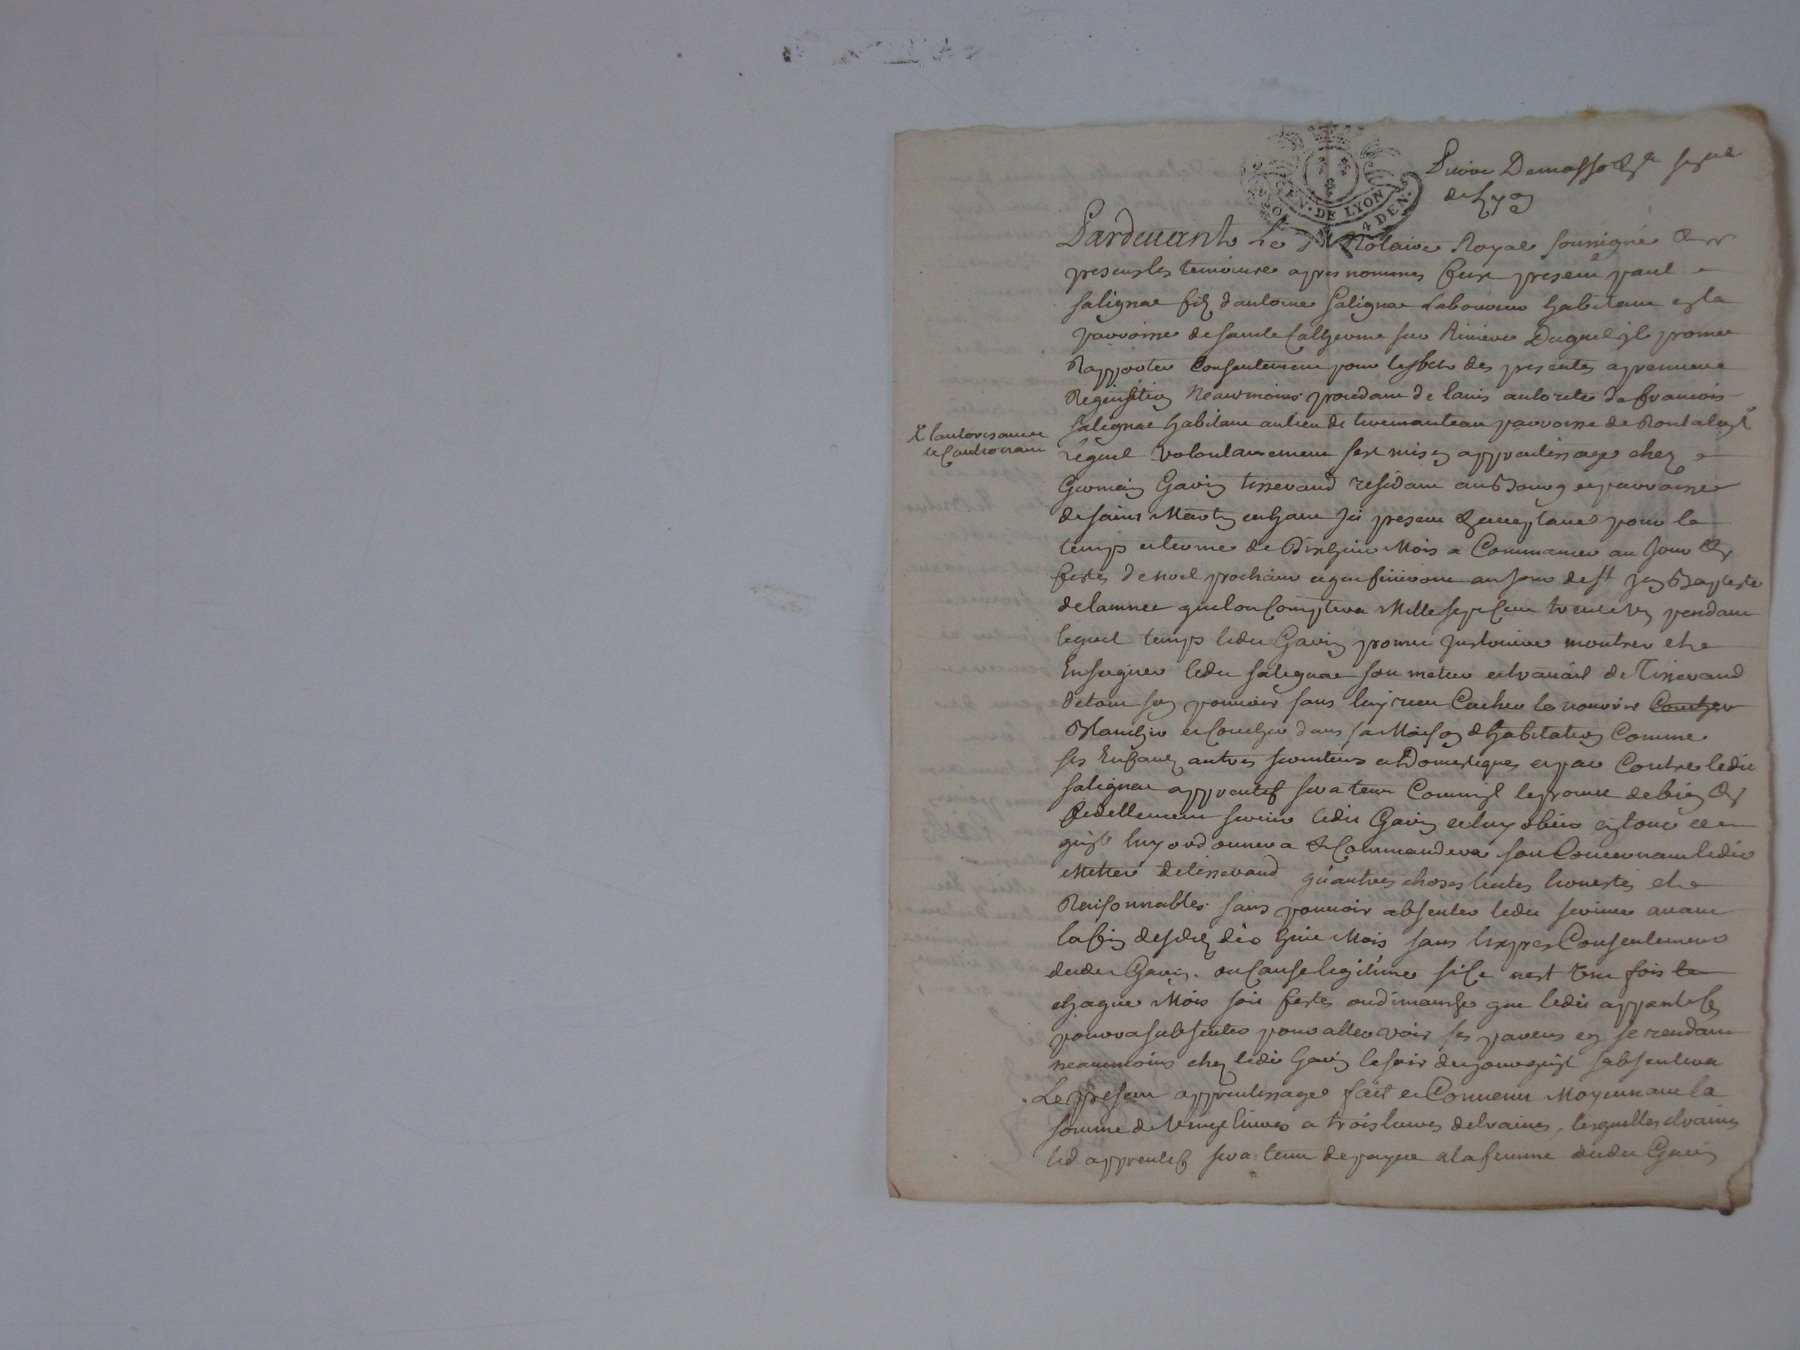 GEN. DE LYON
4 DEN.
Pardevant Le Notaire Royal soussigné &
presents les temoins apres nommes fust present paul
salignac fils dantoine Salignac Laboureur habitant en la
parroisse de sainte Catherine sur Riviere Duquel il promet
Rapporter Consentement pour leffect des presentes a premiere
Requisition Neanmoins procedant de lavis autorité de francois
Salignac habitant au lieu de parroisse de
X lautorisant
et Cautionnant
lequel volontairement sest mis en apprentissage chez
Germain Gavin tisserand residant au Bourg et parroisse
de saint Martin en haut Ici present & acceptant pour le
temps et terme de Dixhuit Mois a Commancer au Jour &
festes de noel prochain et qui finiront au jour de st Jean Baptiste
de lannee que lon Comptera Mille sept Cent trente un pendant
lequel temps ledit Gavin promet Instruire montrer et
Enseigner ledit salignac son metier et travail de Tisserand
de tout son pouvoir sans luy rien Cacher le nourrir Coucher
Blanchir et Coucher dans sa Maison dhabitation Comme
ses Enfans autres serviteurs et Domestiques et par Contre ledit
salignac apprentif sera tenu Comme il le promet de bien &
fidellement servir ledit Gavin et luy obeir en tout ce
quil luy ordonnera & Commandera soit Concernant ledit
Metier de tisserand quautres choses licites honestes et
Raisonnables sans pouvoir absenter ledit service avant
la fin desdits dix huit Mois sans lexpres Consentement
dudit Gavin ou Cause legitime si Ce nest une fois le
chaque Mois soit festes ou dimanche que ledit apprentif
pourra sabsenter pour aller voir ses parens en se rendant
neanmoins chez ledit Gavin le soir du jour quil sabsentera
Le present apprentissage fait et Convenu Moyennant la
somme de Vingt livres et trois livres detraines, lesquelles etraines
led apprentif sera tenu de payer a la femme dudit Gavin